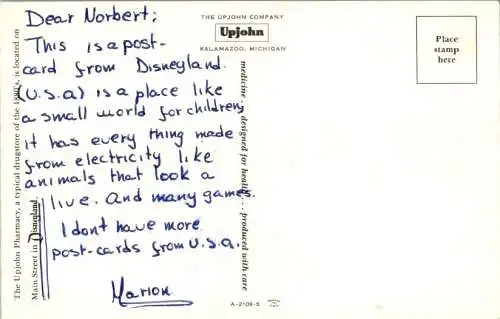 Dear Norbert;
This is a post-
card from Disneyland.
(U.S.a) is a place like
a small world for children;
it has every thing made
from electricity like
animals that look a
live. And many games.
I dont have more
post-cards from U.S.a.
Marion
The Upjohn Pharmacy, a typical drugstore of the 1890's, is located on
Main Street in Disneyland.
THE UPJOHN COMPANY
Upjohn
KALAMAZOO, MICHIGAN
medicine . . . designed for health . . . produced with care
Place
stamp
here
A-2109-5